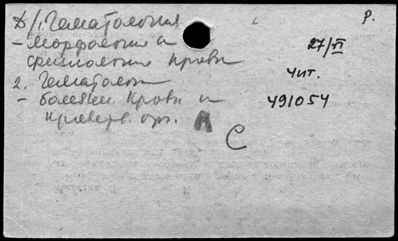 Д/1. Гематология
Р.
- Морфология и
27/VI
физиология крови
Чит.
2. Гематолог
- болезни крови и
491054
кроветв. орг.
С